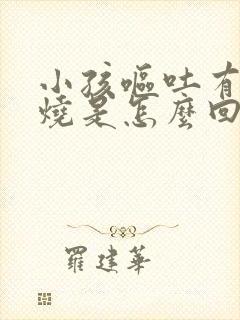 小孩嘔吐有
燒是怎麼回
羅建華